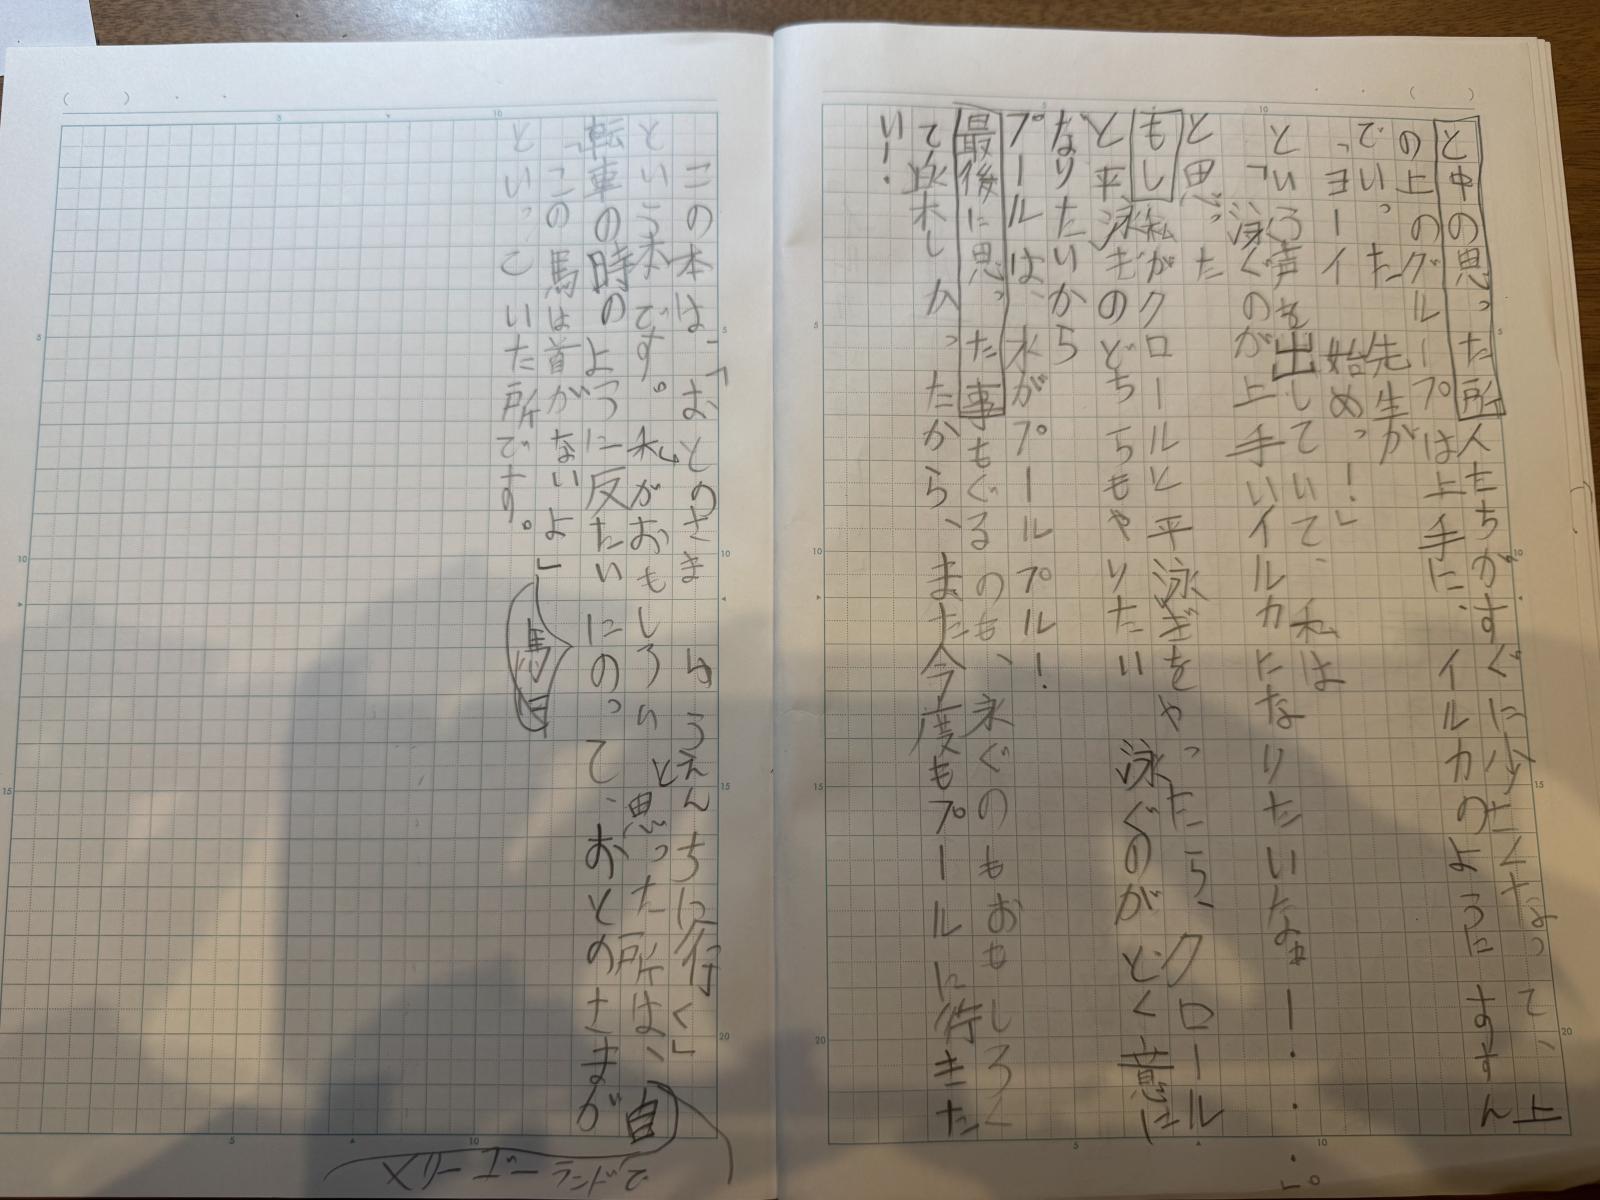 と中の思った所人たちがすぐに少なくなって、上
の上のグループは上手に、イルカのようにすすん
でいった。先生が
「ヨーイ 始めっ！」
という声を出していて、私は
と「泳ぐのが上手いイルカになりたいなぁー・・・。」
と思った
もし私がクロールと平泳ぎをやったら、クロール
と平泳ぎのどちらもやりたい 泳ぐのがとく意に
なりたいから
プールは、水がプールプル！
最後に思った事もぐるのも、永ぐのもおもしろく
て楽しかったから、また今度もプールに行きた
い！．
この本は、「おとのさま ようえんちに行く」
という本です。私がおもしろいと思った所は、自
転車の時のように反たいにのって、おとのさまが
「この馬は首がないよ」
といっていた所です。
馬